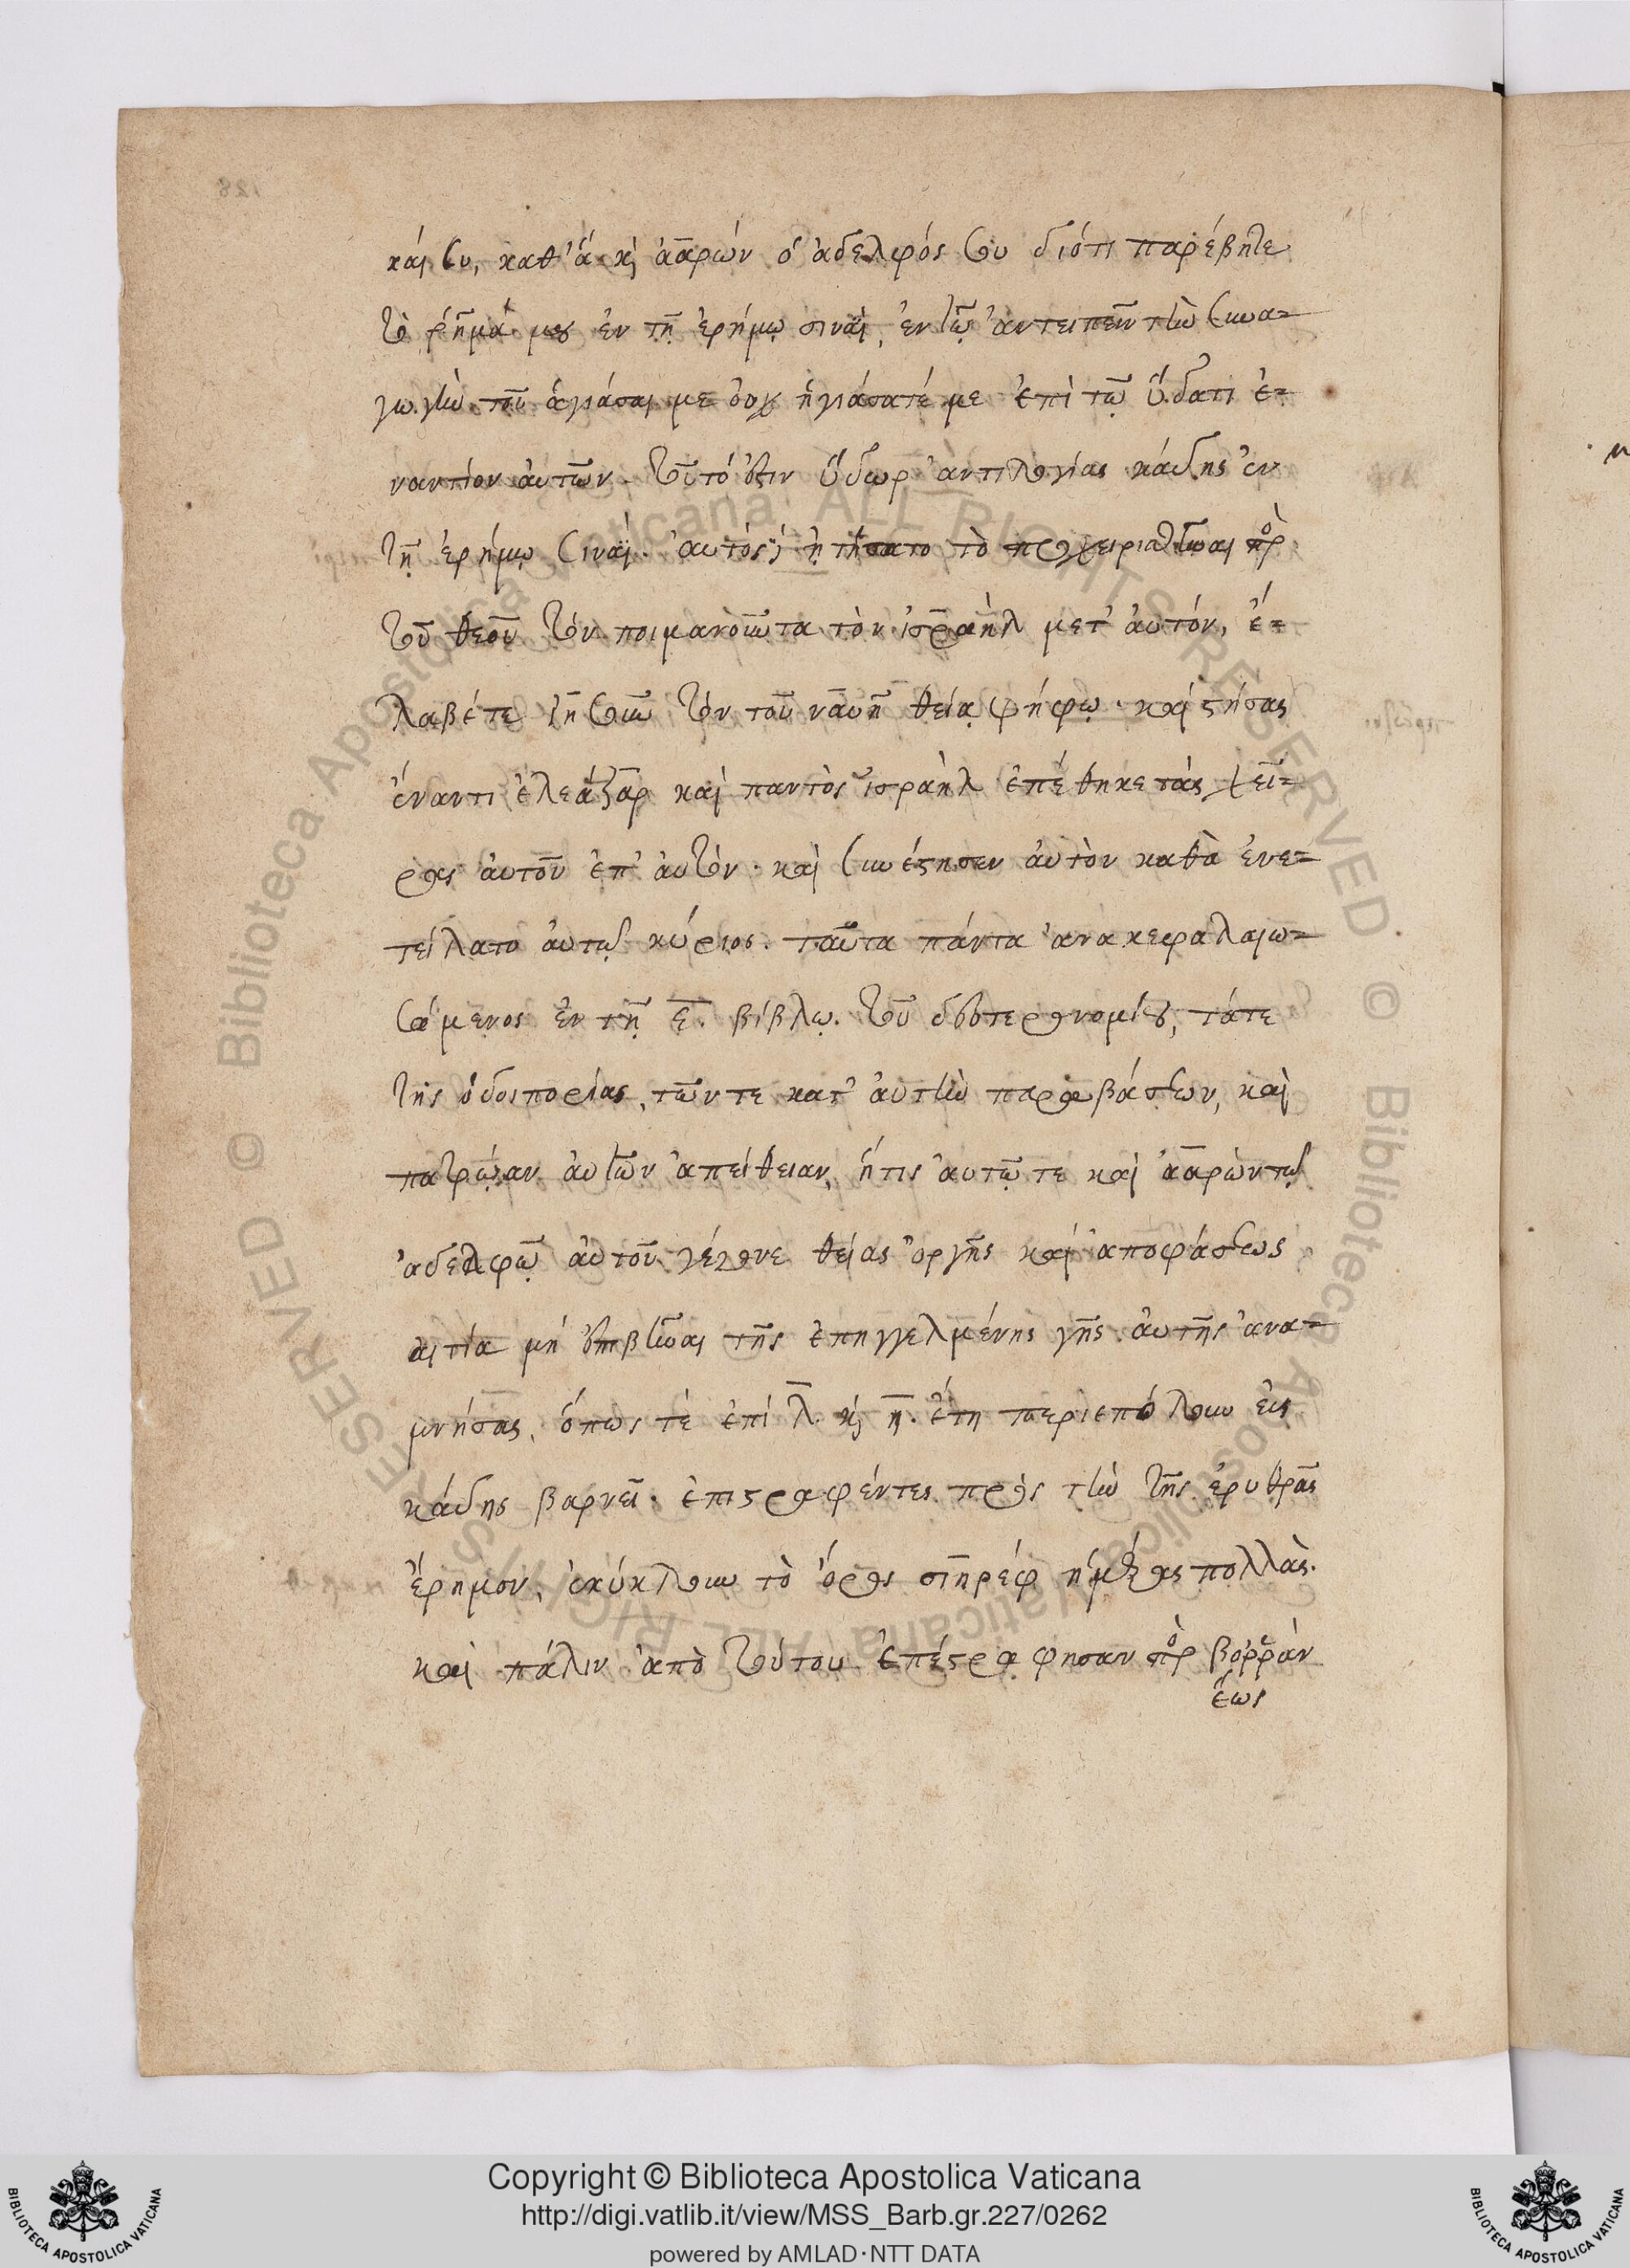 καὶ συ, καθ' ἃ κὶ ἀαρών ὁ ἀδελφός σου διότι παρέβητε
τὸ ῥῆμά μου ἐν τῇ ἐρήμῳ σινᾶϊ, ἐν τῷ ἀντειπεῖν τὴν συνα=
γωγὴν τοῦ ἁγιάσαι με οὐχ ἡγιάσατέ με ἐπὶ τῷ ὕδατι ἐ=
ναντίον ἀυτῶν. τοῦτό ἐστιν ὕδωρ ἀντιλογίας κάδης ἐν
τῇ ἐρήμῳ σινᾶϊ. ἀυτός ᾐτήσατο τὸ προχειρισθῆναι πρὸ
τοῦ θεοῦ τὸν ποιμανοῦντα τὸν ἰσραὴλ μετ' ἀυτόν, ἐ=
λαβέτε ἰησοῦν τὸν τοῦ ναυῆ θείᾳ ψήφῳ. καὶ στήσας
ἔναντι ἐλεάζαρ καὶ παντὸς ἰσραὴλ ἐπέθηκε τὰς χεῖ=
ρας ἀυτοῦ ἐπ' ἀυτὸν. καὶ συνέστησεν ἀυτὸν καθὰ ἐνε=
τείλατο ἀυτῷ κύριος. ταῦτα πάντα ἀνακεφαλαιω=
σάμενος ἐν τῇ ε. βίβλῳ. τοῦ δευτερονομίου, τάτε
τῆς ὁδοιπορίας, τῶν τε κατ' ἀυτὴν παραβάσεων, καὶ
πατρῴαν ἀυτῶν ἀπείθειαν, ἥτις ἀυτῷ τε καὶ ἀαρὼν τῷ
ἀδελφῷ ἀυτοῦ γέγονε θείας ὀργῆς καὶ ἀποφάσεως
αιτία μή ἐπιβῆναι τῆς ἐπηγγελμένης γῆς. ἀυτῆς ἀνα=
μνήσας, ὅπως τὲ ἐπὶ λ. κὶ η. ἔτη περιεπόλουν εἰς
κάδης βαρνεῖ. ἐπιστραφέντες πρὸς τὴν τῆς ἐρυθρᾶς
ἔρημον, ἐκύκλουν τὸ ὄρος σιηρέφ ἡμέρας πολλὰς.
καὶ πάλιν ἀπὸ τούτου ἐπέστράφησαν πρὸ βορρὰν
ἕως
Copyright © Biblioteca Apostolica Vaticana
http://digi.vatlib.it/view/MSS_Barb.gr.227/0262
powered by AMLAD·NTT DATA